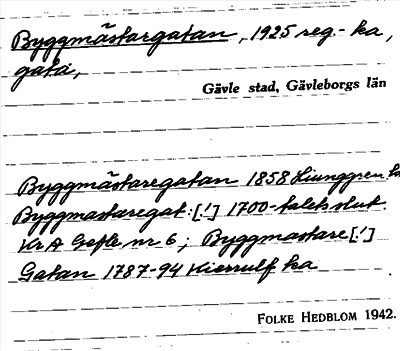 Byggmästargatan, 1925 reg.-ka,
gata,
Gävle stad, Gävleborgs län
Byggmästaregatan 1858 Ljunggren ka
Byggmastaregat: [!] 1700-talets slut
Kr A Gefle nr 6; Byggmastare [!]
Gatan 1787-94 Kierrulf ka
FOLKE HEDBLOM 1942.